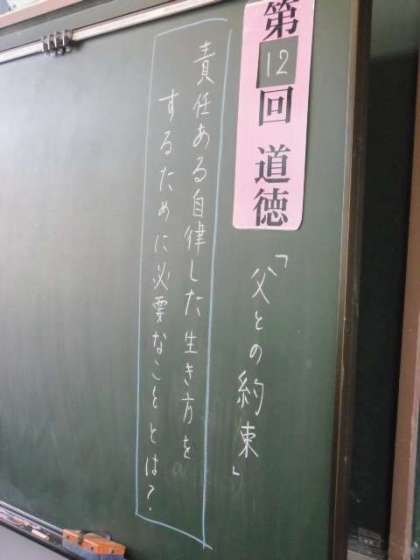 第12回 道徳
「父との約束」
責任ある自律した生き方を
するために必要なこととは？